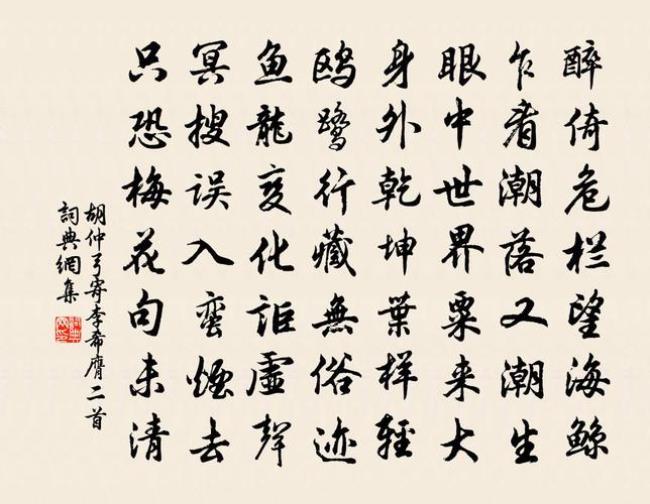 醉倚危栏望海鲸
乍看潮落又潮生
眼中世界粟来大
身外乾坤葉样轻
鸥鹭行藏無俗迹
鱼龍变化詎虚聲
冥搜误入蛮烟去
只恐梅花句未清
胡仲弓寄李希膺二首
詞典網集